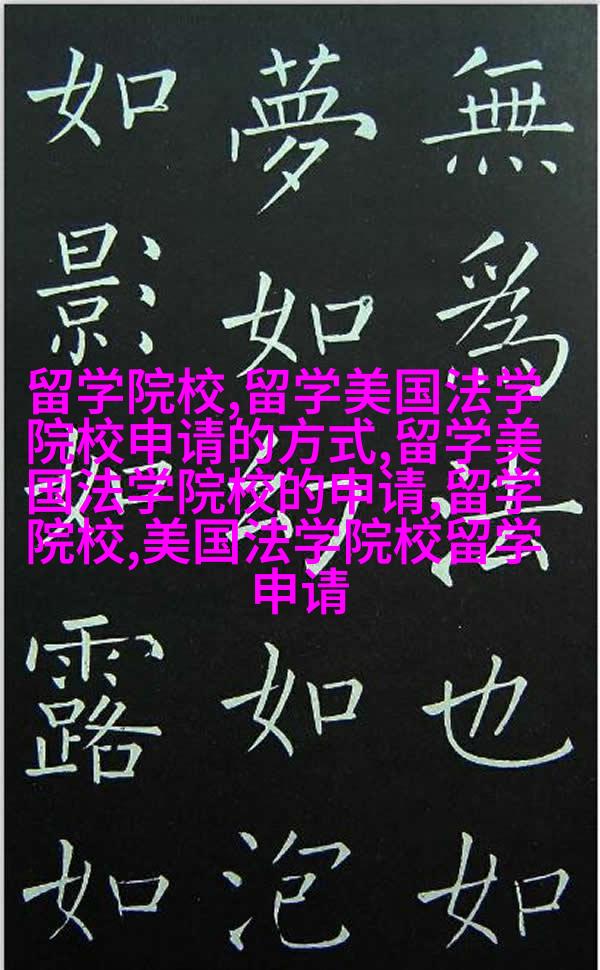 無爲法也如
夢如幻如泡
如影如露如
留学院校,留学美国法学
院校申请的方式,留学美
国法学院校的申请,留学
院校,美国法学院校留学
申请